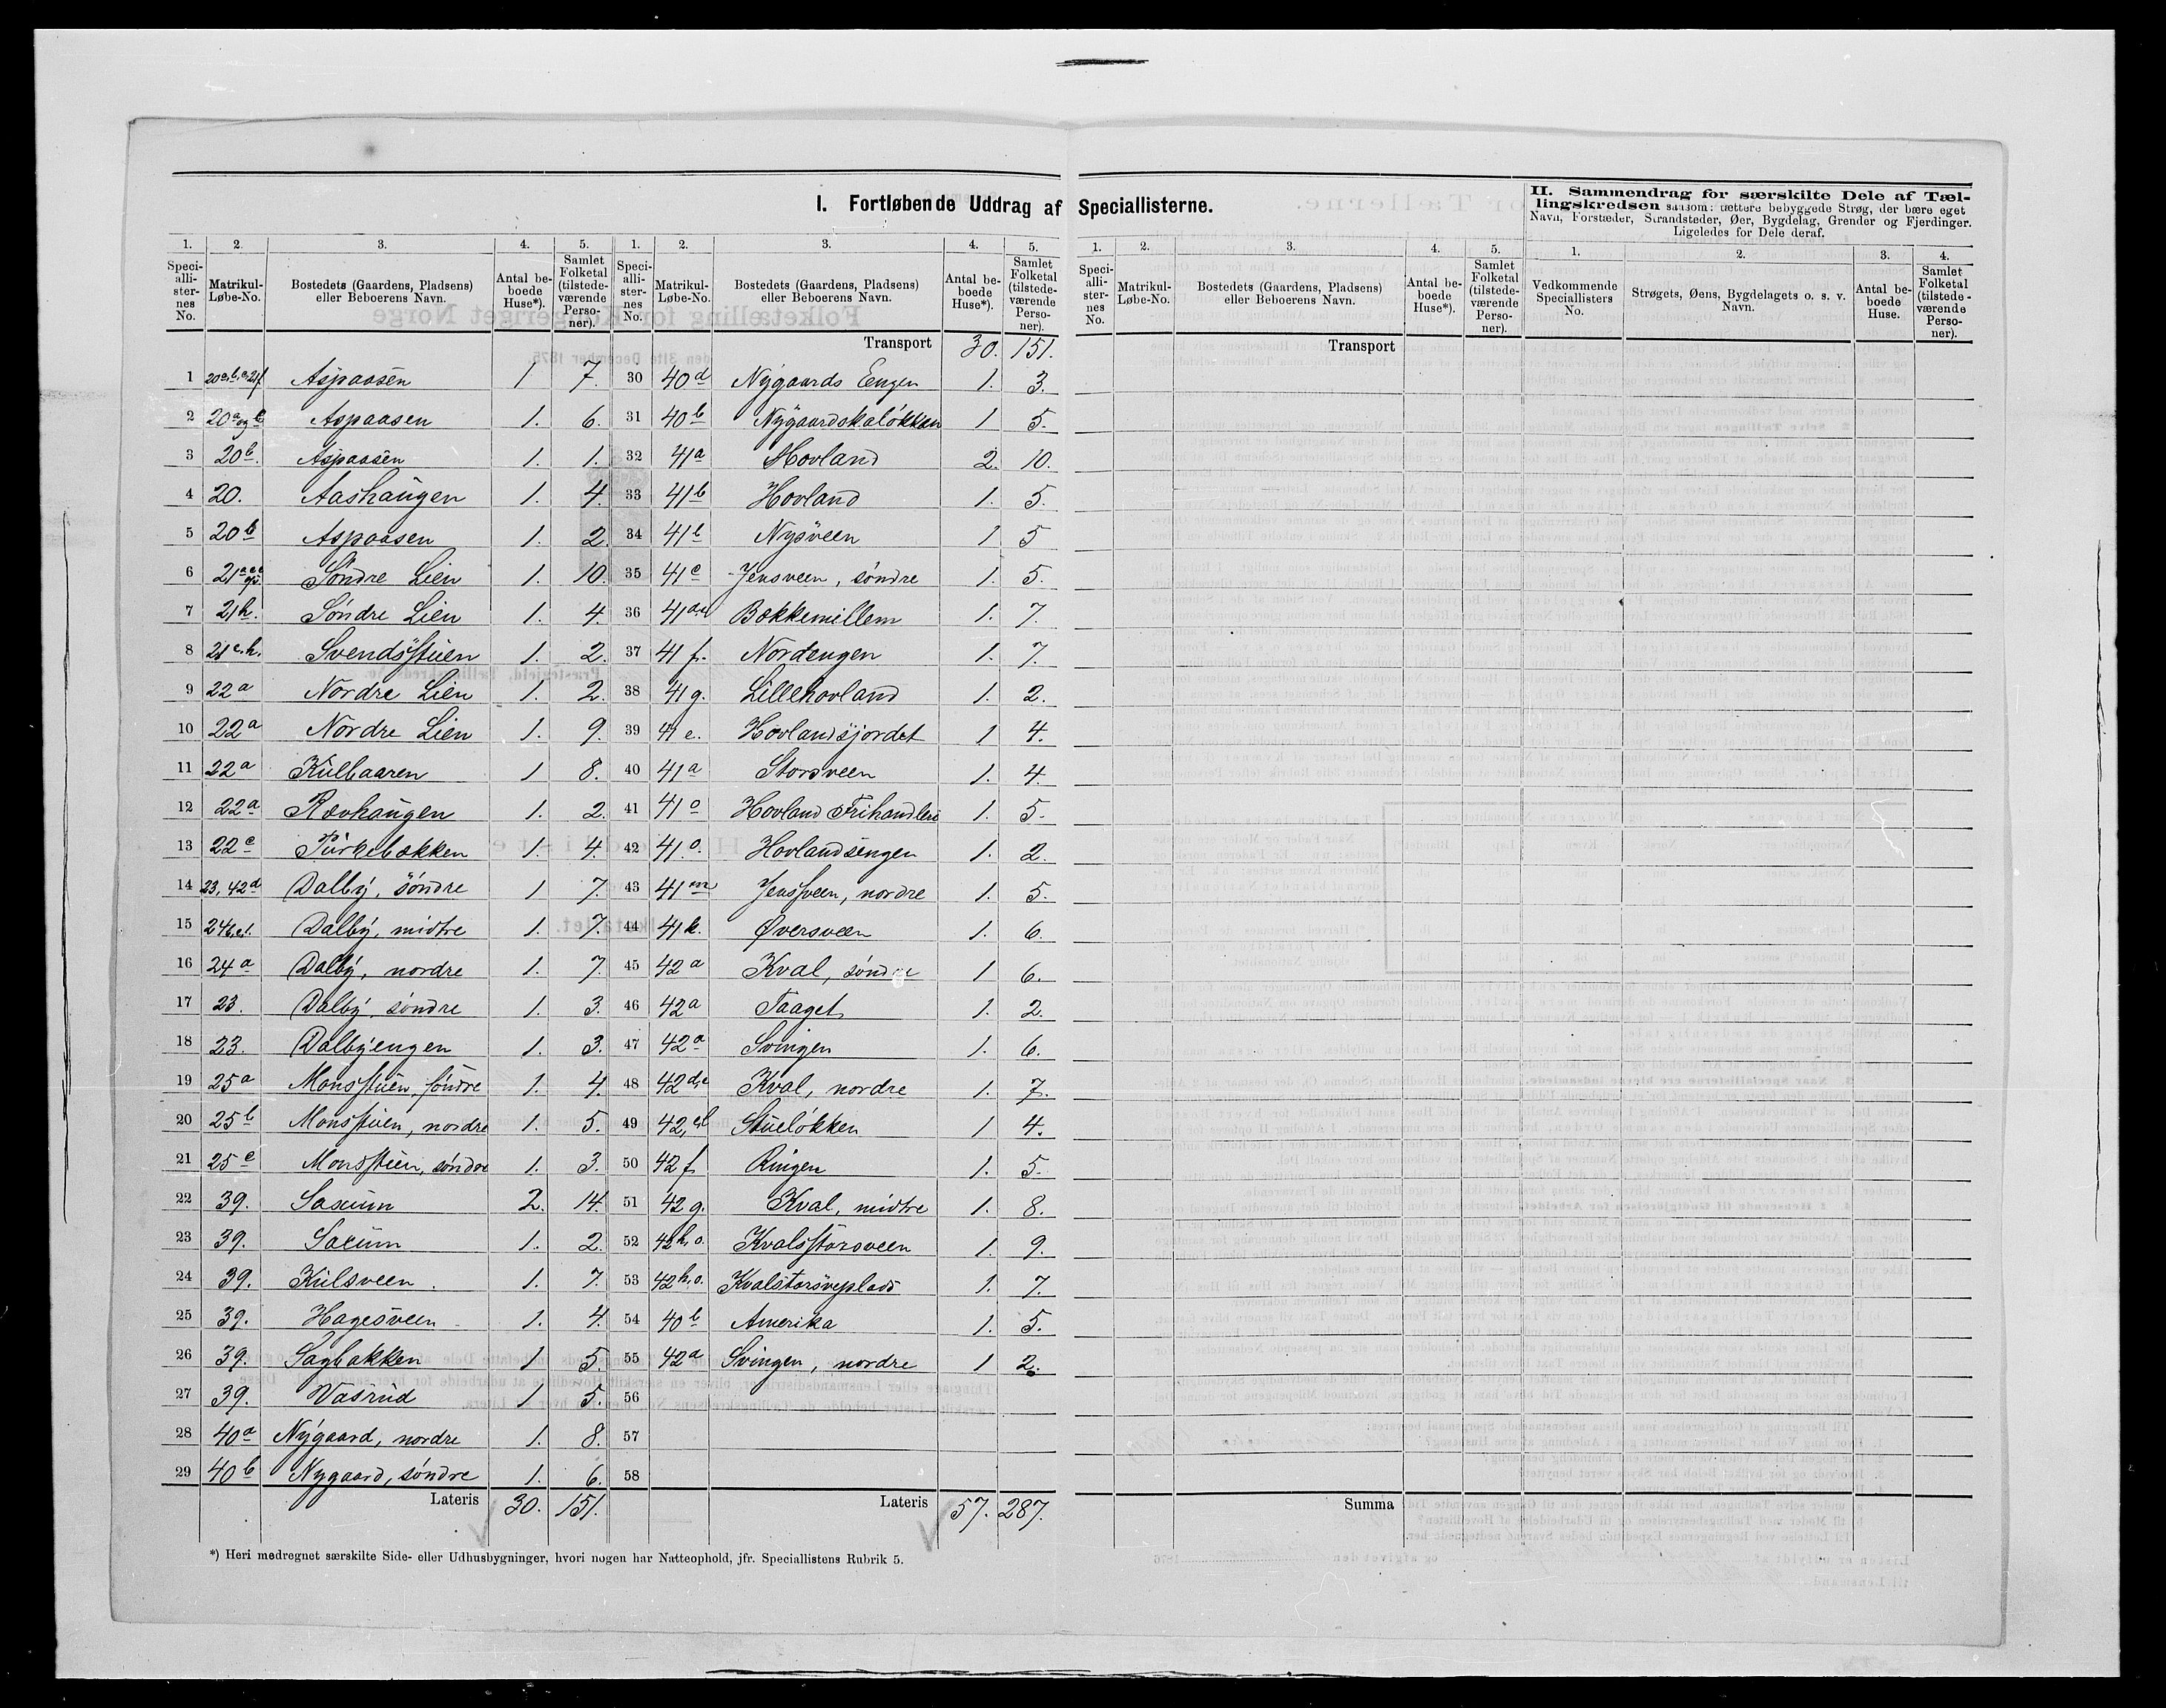 I. Fortløbende Uddrag af Speciallisterne.
II. Sammendrag for særskilte Dele af Tæl-
lingskredsen saasom: tættere bebyggede Strøg, der bære eget
Navn, Forstæder, Strandsteder, Øer, Bygdelag, Grender og Fjerdinger.
Ligeledes for Dele deraf.
1. 2. 3. 4. 5. 1. 2. 3. 4. 5. 1. 2. 3. 4. 5. 1. 2. 3. 4.
Speciallisternes No. Matrikul-Løbe-No. Bostedets (Gaardens, Pladsens) eller Beboerens Navn. Antal beboede Huse*). Samlet Folketal (tilstedeværende Personer).
Speciallisternes No. Matrikul-Løbe-No. Bostedets (Gaardens, Pladsens) eller Beboerens Navn. Antal beboede Huse*). Samlet Folketal (tilstedeværende Personer).
Speciallisternes No. Matrikul-Løbe-No. Bostedets (Gaardens, Pladsens) eller Beboerens Navn. Antal beboede Huse*). Samlet Folketal (tilstedeværende Personer).
Vedkommende Speciallisters No. Strøgets, Øens, Bygdelagets o. s. v. Navn. Antal beboede Huse. Samlet Folketal (tilstedeværende Personer).
Transport 30. 151. Transport
1 Aspaasen 1 7. 30 40d Nygaards Eengen 1. 3.
2 20a og b Aspaasen 1. 6. 31 40b Nygaardskaløkken 1 5.
3 20b. Aspaasen 1. 1. 32 41a Hovland 2. 10.
4 20. Aashaugen 1. 4. 33 41b Hovland 1. 5.
5 20b Aspaasen 1. 2. 34 41b Nysveen 1 5
6 Søndre Lien 1. 10. 35 41c Jensveen, søndre 1. 5.
7 21h. Søndre Lien 1. 4. 36 Bakkemillem 1. 7.
8 21e.h. Svendsstuen 1. 2. 37 41f. Nordengen 1. 7.
9 22a Nordre Lien 1. 2. 38 41g. Lillehovland 1. 2.
10 22a Nordre Lien 1. 9. 39 41e. Hovlandsjordet 1 4.
11 22a Kulbaaren 1 8. 40 41a Storsveen 1. 4.
12 22a Rovhaugen 1. 2. 41 41o Hovland Frihandleri 1. 5.
13 22c 1. 4. 42 41.o. Hovlandsengen 1. 2.
14 23, 42d Dalby, søndre 1 7. 43 41m Jensveen, nordre 1. 5.
15 Dalby, midtre 1. 7. 44 41k. Øversveen 1. 6.
16 24a Dalby, nordre 1. 7. 45 42a Kval, søndre 1 6.
17 23. Dalby, søndre 1. 3. 46 42a Taaget 1. 2.
18 23. Dalbyengen 1. 3. 47 42a Svingen 1. 6.
19 25a Monsstuen, søndre 1. 4. 48 42d,e Kval, nordre 1. 7.
20 25b Monsstuen, nordre 1. 5. 49 Stueløkken 1 4.
21 25c Monsstuen, søndre 1. 3. 50 42f Ringen 1. 5.
22 39. Saxum 2. 14. 51 42g. Kval, midtre 1. 8.
23 39. Saxum 1. 2. 52 42h.o. Kvalsstorsveen 1. 9.
24 39. Kulsveen 1. 7. 53 42h.o. Kvalstorsveplads 1. 7.
25 39. Hagesveen 1. 4. 54 40b Amerika 1. 5.
26 39. Sagbakken 1 5. 55 42a Svingen, nordre 1 2.
27 39. Vasrud 1 5. 56
28 40a Nygaard, nordre 1. 8. 57
29 40b Nygaard, søndre 1. 6. 58
Lateris 30. 151. Lateris 57. 287. Summa
*) Heri medregnet særskilte Side- eller Udhusbygninger, hvori nogen har Natteophold, jfr. Speciallistens Rubrik 5.